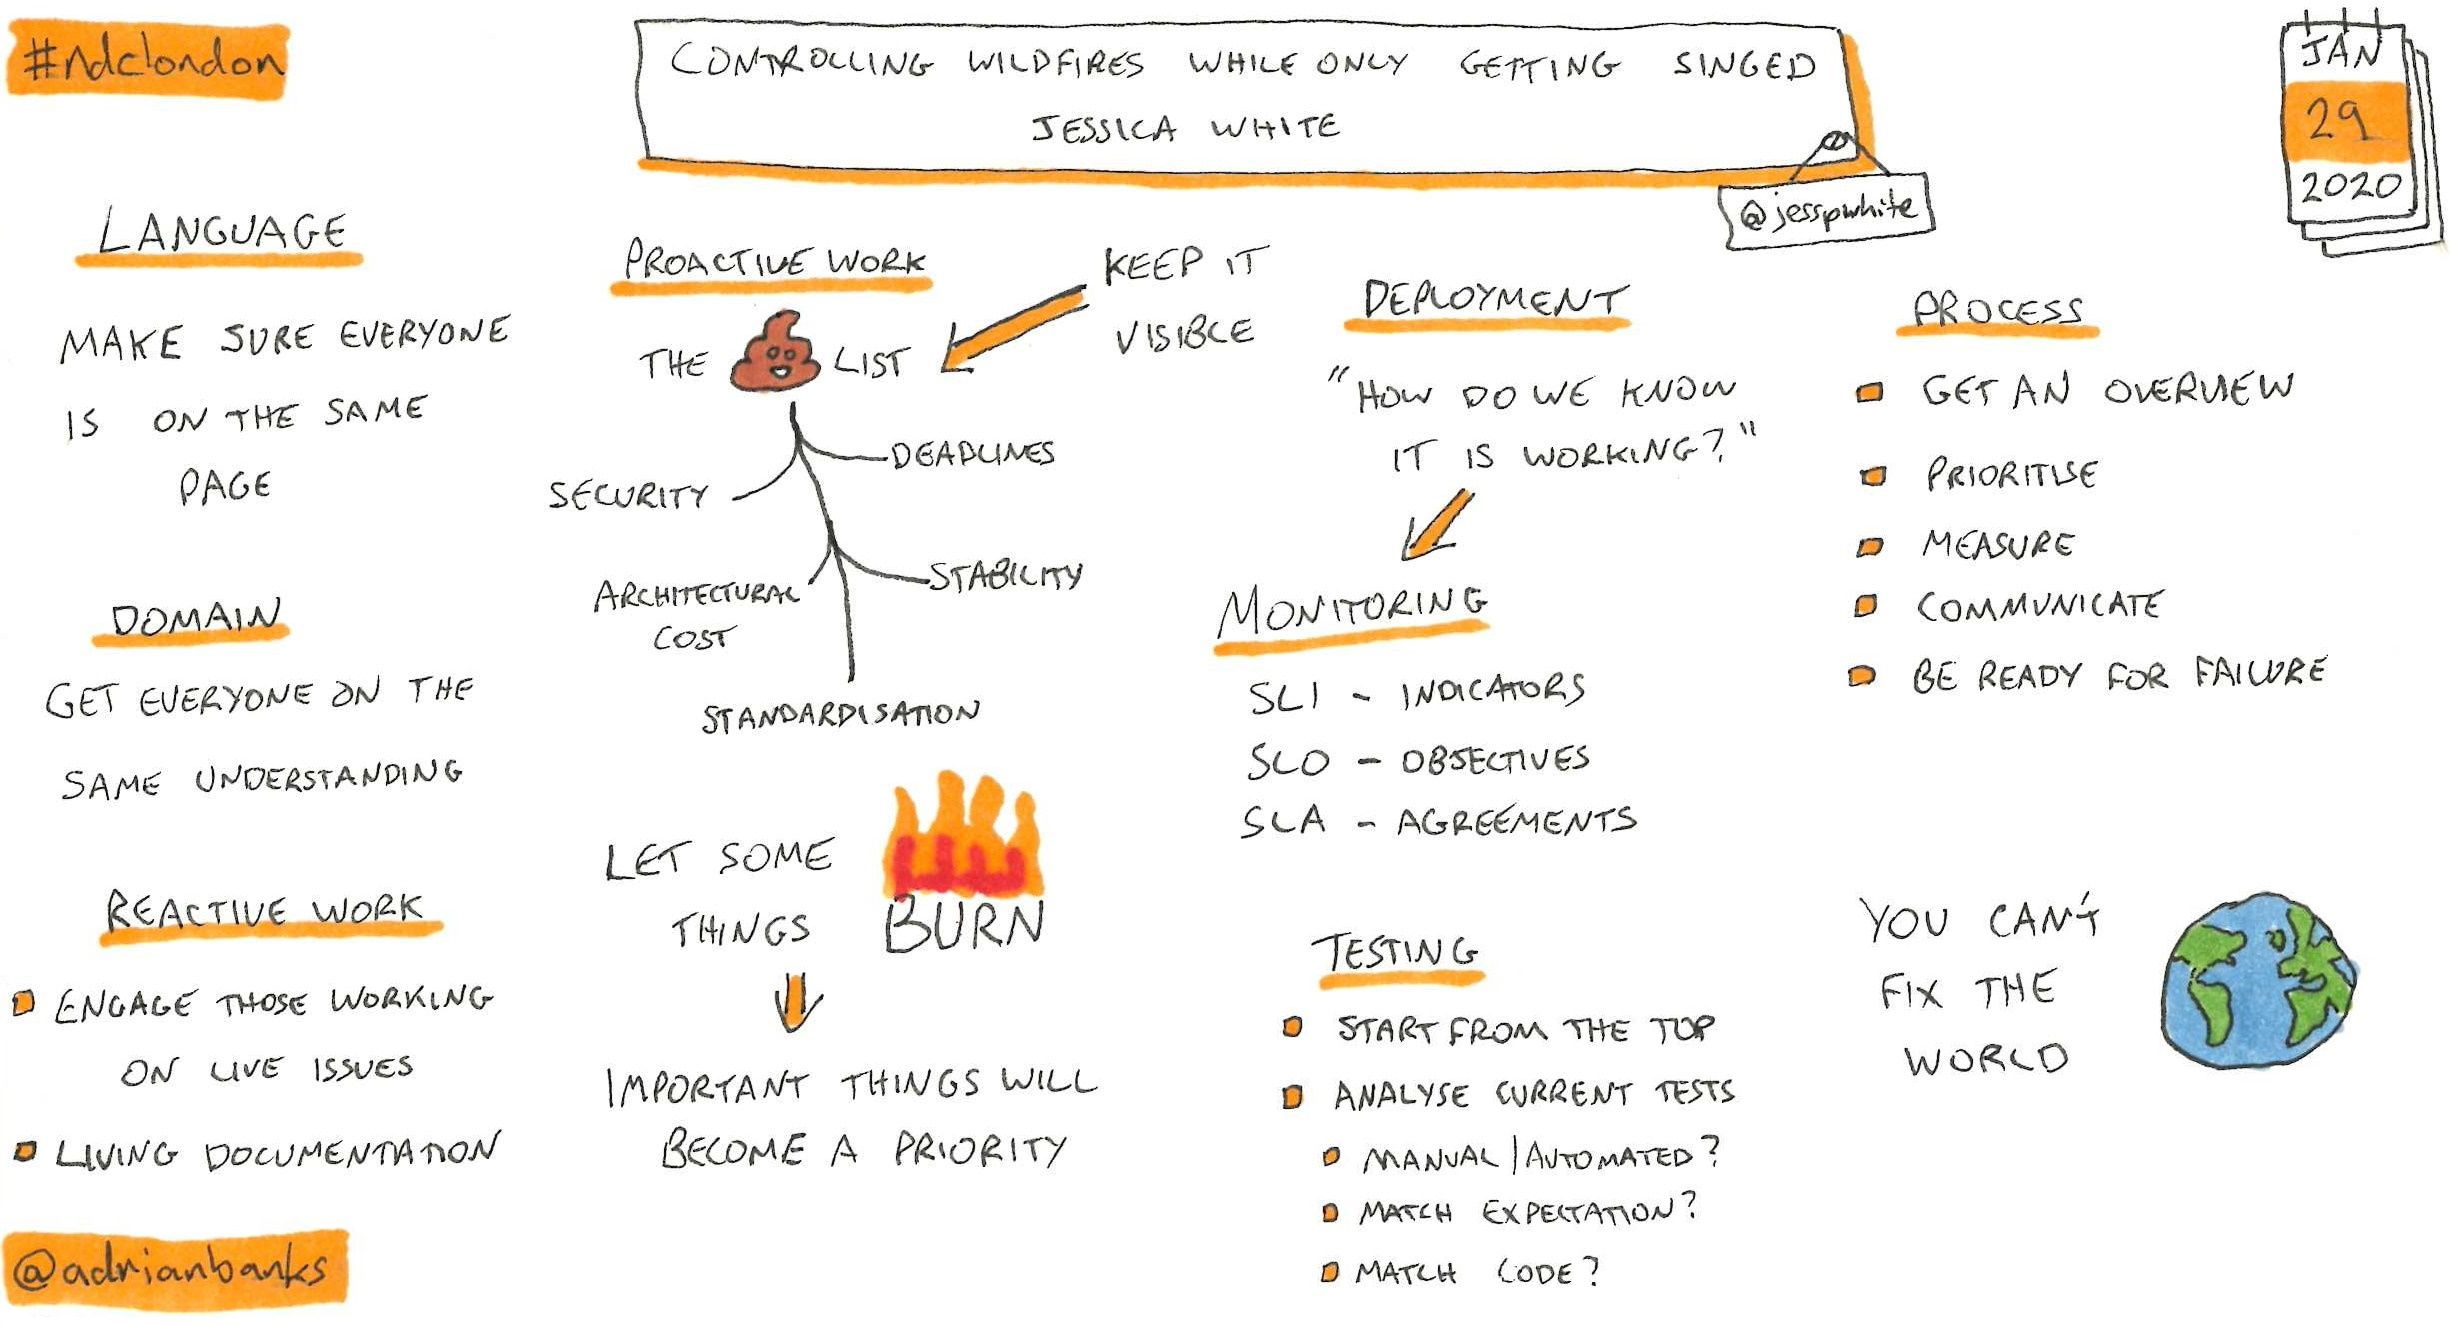 #ndclondon
CONTROLLING WILDFIRES WHILE ONLY GETTING SINGED
JESSICA WHITE
@jesspwhite
JAN
29
2020
LANGUAGE
MAKE SURE EVERYONE
IS ON THE SAME
PAGE
DOMAIN
GET EVERYONE ON THE
SAME UNDERSTANDING
REACTIVE WORK
ENGAGE THOSE WORKING
ON LIVE ISSUES
LIVING DOCUMENTATION
@adrianbanks
PROACTIVE WORK
THE LIST
KEEP IT
VISIBLE
DEADLINES
SECURITY
STABILITY
ARCHITECTURAL
COST
STANDARDISATION
LET SOME
THINGS BURN
IMPORTANT THINGS WILL
BECOME A PRIORITY
DEPLOYMENT
"HOW DO WE KNOW
IT IS WORKING?"
MONITORING
SLI - INDICATORS
SLO - OBJECTIVES
SLA - AGREEMENTS
TESTING
START FROM THE TOP
ANALYSE CURRENT TESTS
MANUAL/AUTOMATED?
MATCH EXPECTATION?
MATCH CODE?
PROCESS
GET AN OVERVIEW
PRIORITISE
MEASURE
COMMUNICATE
BE READY FOR FAILURE
YOU CAN'T
FIX THE
WORLD